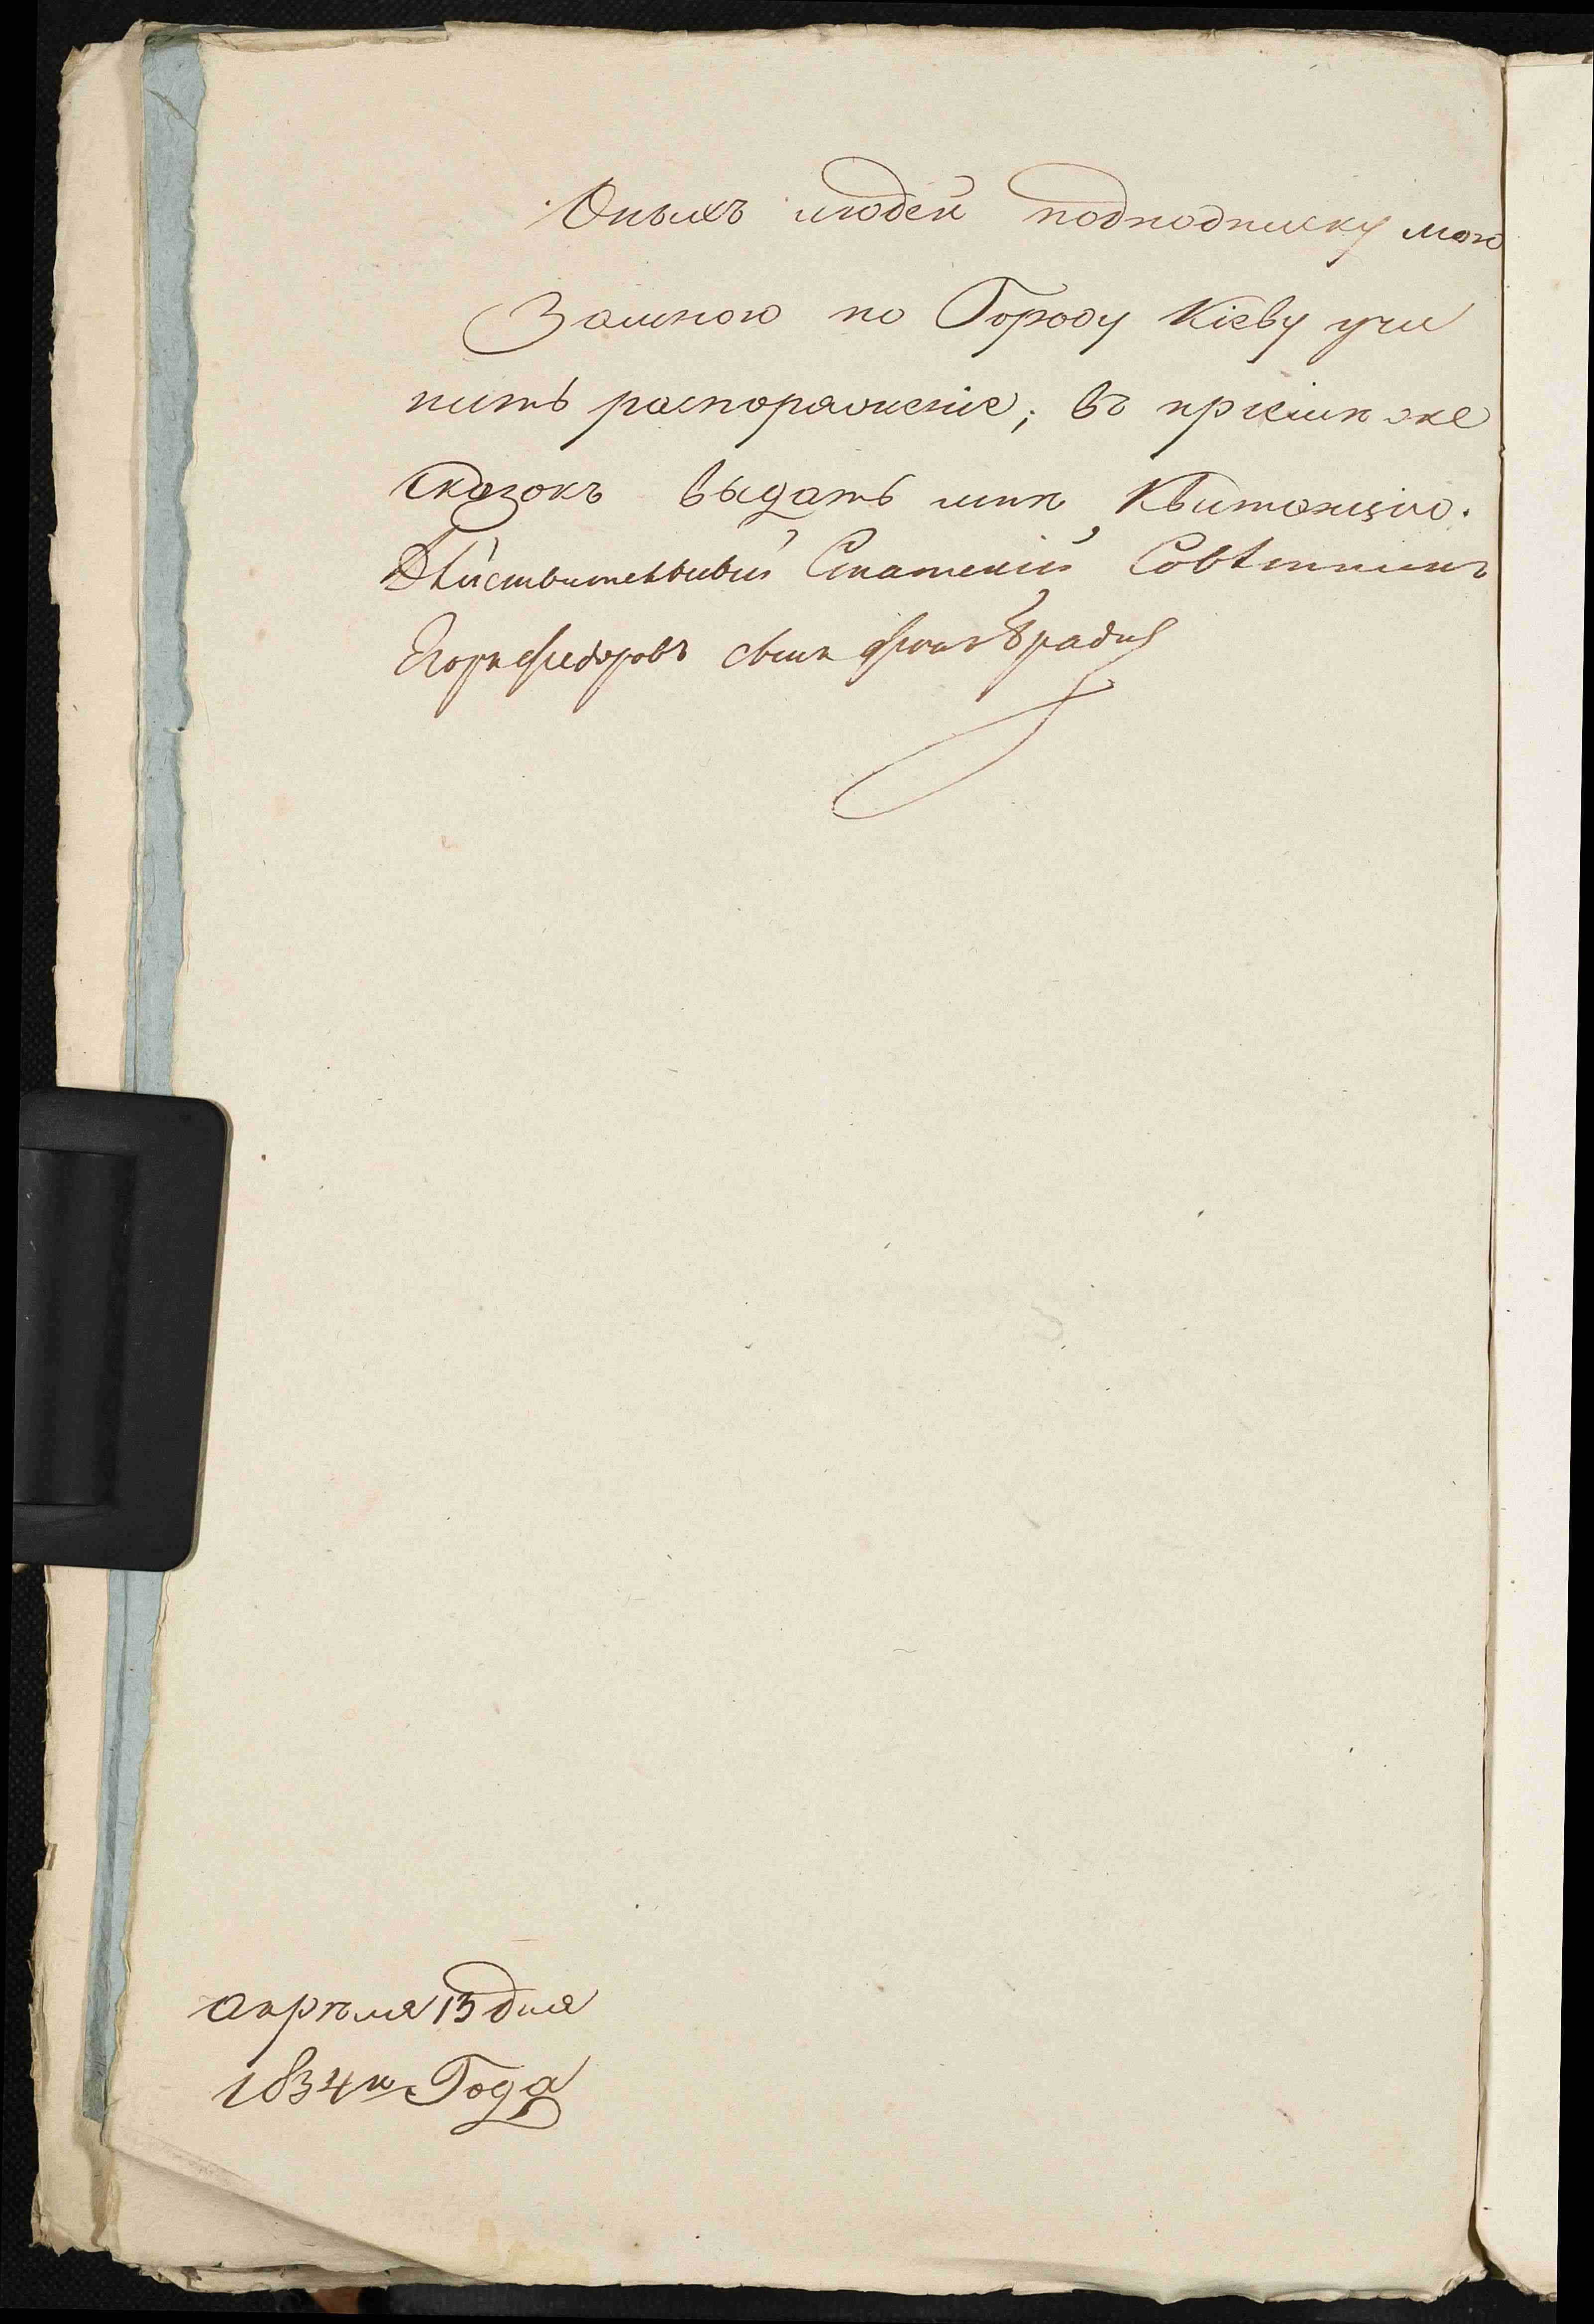 Оныхъ людей подподписку мою
Замною по Городу Кіеву учи
нить распоряженіе; въ пріемѣ же
сказокъ выдать мнѣ Квитанцію.
Дѣйствительный Статскій Совѣтникъ
Егоръ Федоровъ сынъ
Апрѣля 15 дня
1834го Года